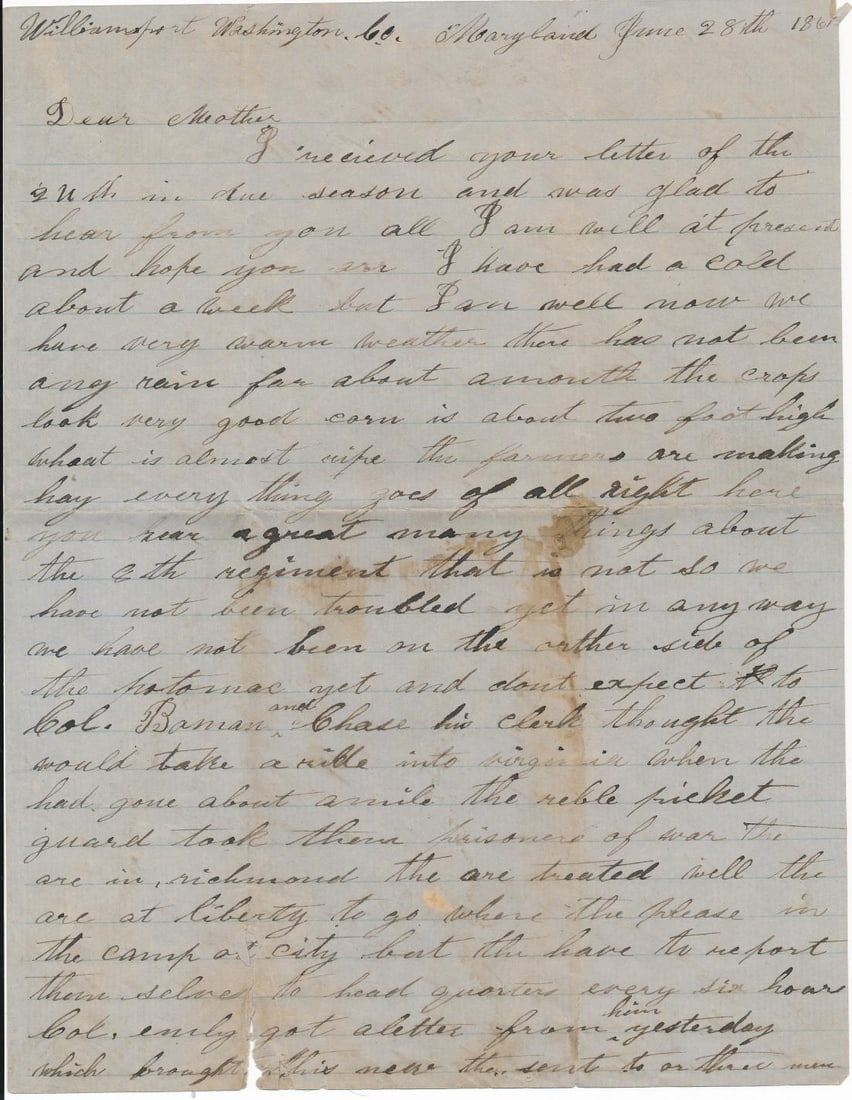 Williamsport Washington. Co. Maryland June 28th 1861
Dear Mother
I recieved your letter of the
24 th in due season and was glad to
hear from you all I am well at present
and hope you arr I have had a cold
about a week but I am well now we
have very warm weather there has not been
any rain for about a month the crops
look very good corn is about two foot high
wheat is almost ripe the farmers are making
hay every thing goes of all right here
you hear a great many things about
the 8th regiment that is not so we
have not been troubled yet in any way
we have not been on the orther side of
the potomac yet and dont expect to
Col. Baman and Chase his clerk thought the
would take a ride into virginia when the
had gone about a mile the reble picket
guard took them prisoners of war the
are in, richmond the are treated well the
are at liberty to go where the please in
the camp or city but the have to report
them selves to head quarters every six hours
Col. emly got a letter from him yesterday
which brought this news the. sent to or three men